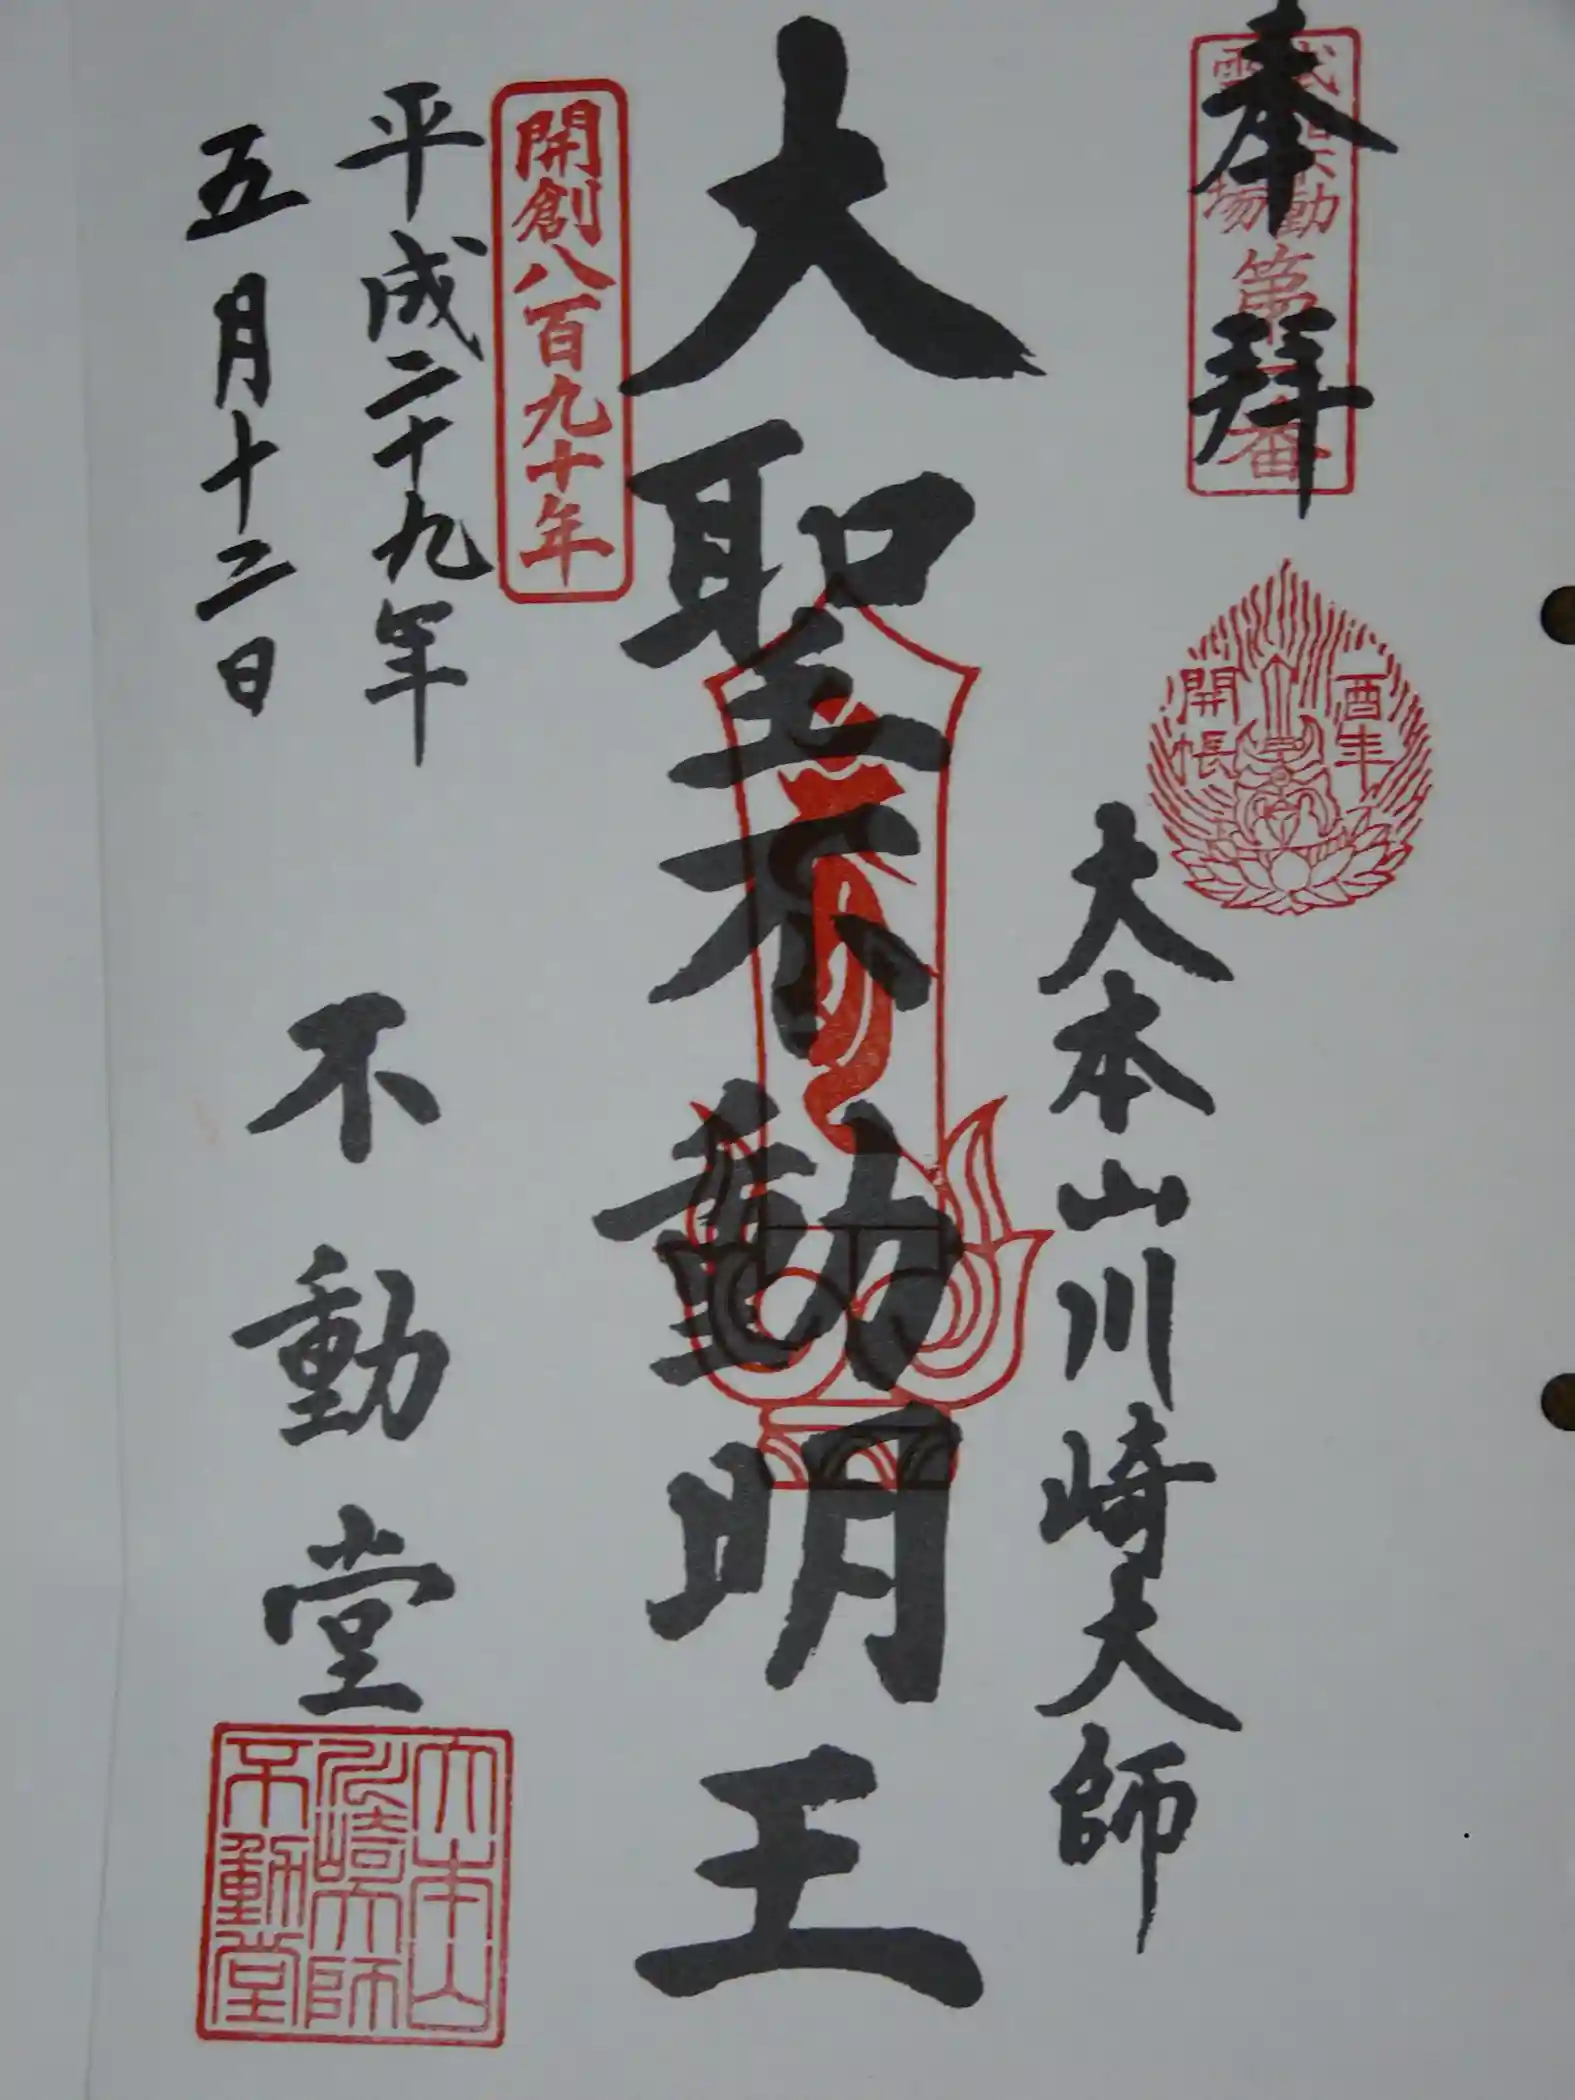 奉拝
武相不動
霊場
第
番
酉年
開帳
大本山川崎大師
大聖不動明王
開創八百九十年
平成二十九年
五月十二日
不動堂
大本山
川崎大師
不動堂